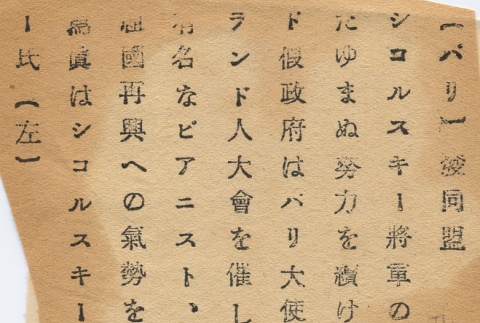 【パリ】發同盟
シコルスキー將軍の
たゆまぬ努力を續け
ド假政府はパリ大使
ランド人大會を催し
有名なピアニスト、
祖國再興への氣勢を
寫眞はシコルスキー
ー氏（左）